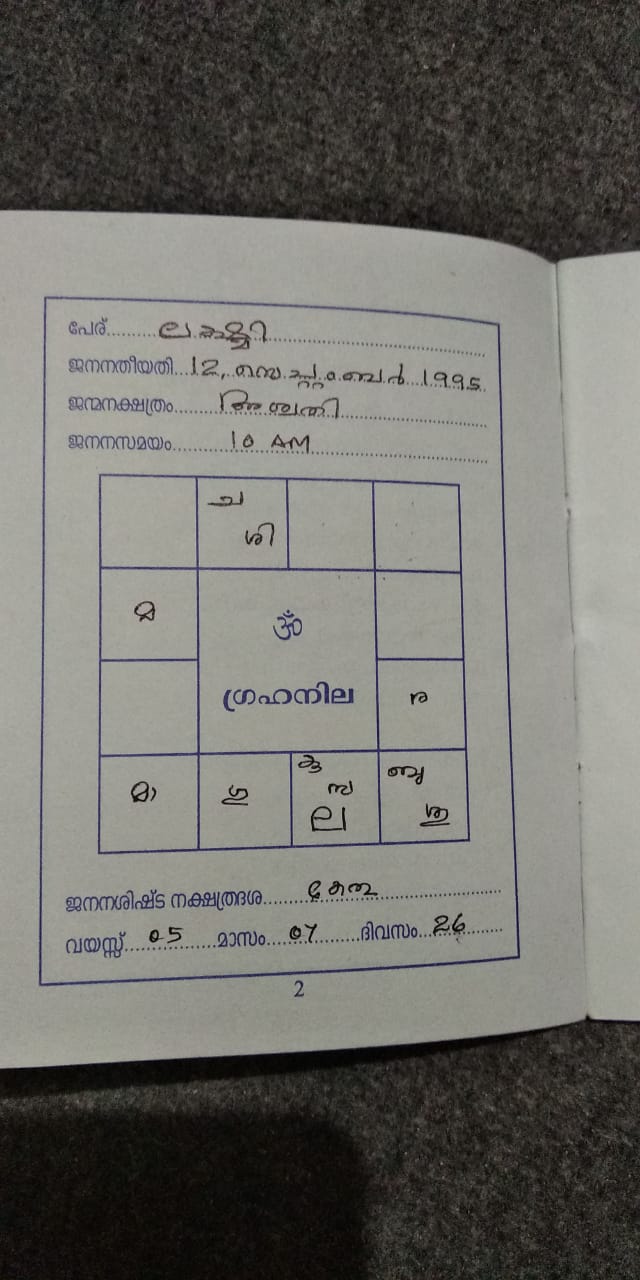 പേര്.........ലക്ഷ്മി
ജനനതീയതി...12, സെപ്റ്റംബർ 1995
ജന്മനക്ഷത്രം......അശ്വതി
ജനനസമയം.........10 AM
ച
ശി
മ
ഓം
ഗ്രഹനില
ര
മാ
ഗു
കു
സ
ല
ബു
ശു
ജനനശിഷ്ട നക്ഷത്രദശ........കേതു
വയസ്സ്....05......മാസം....07......ദിവസം...26
2